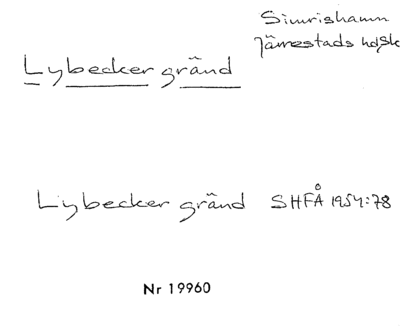 Simrishamn
Järrestads hdSk
Lybecker gränd
Lybecker gränd SHFÅ 1954:78
Nr 19960